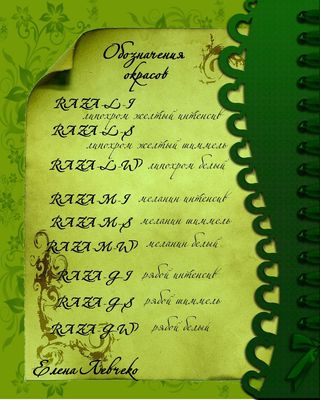 Обозначения
окрасов
RAZA-L-I
липохром желтый интенсив
RAZA-L-S
липохром желтый шиммель
RAZA-L-W липохром белый
RAZA-M-I меланин интенсив
RAZA-M-S меланин шиммель
RAZA-M-W меланин белый
RAZA-G-I рябой интенсив
RAZA-G-S рябой шиммель
RAZA-G-W рябой белый
Елена Левчеко